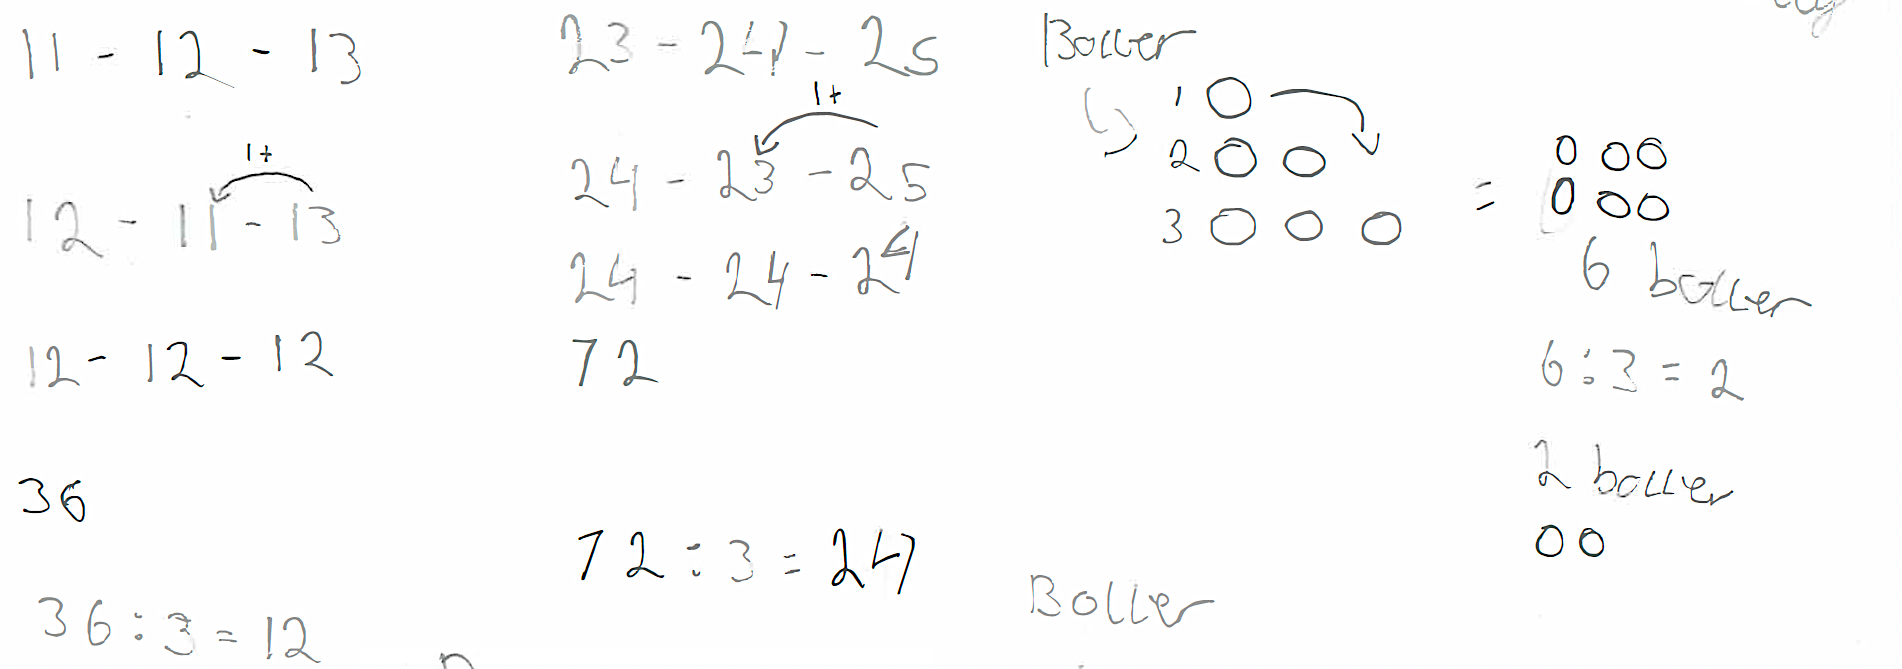 11 - 12 - 13
1+
12 - 11 - 13
12 - 12 - 12
36
36 : 3 = 12
23 - 24 - 25
1+
24 - 23 - 25
24 - 24 - 24
72
72 : 3 = 24
Boller
1
2
3
=
6 boller
6 : 3 = 2
2 boller
Boller